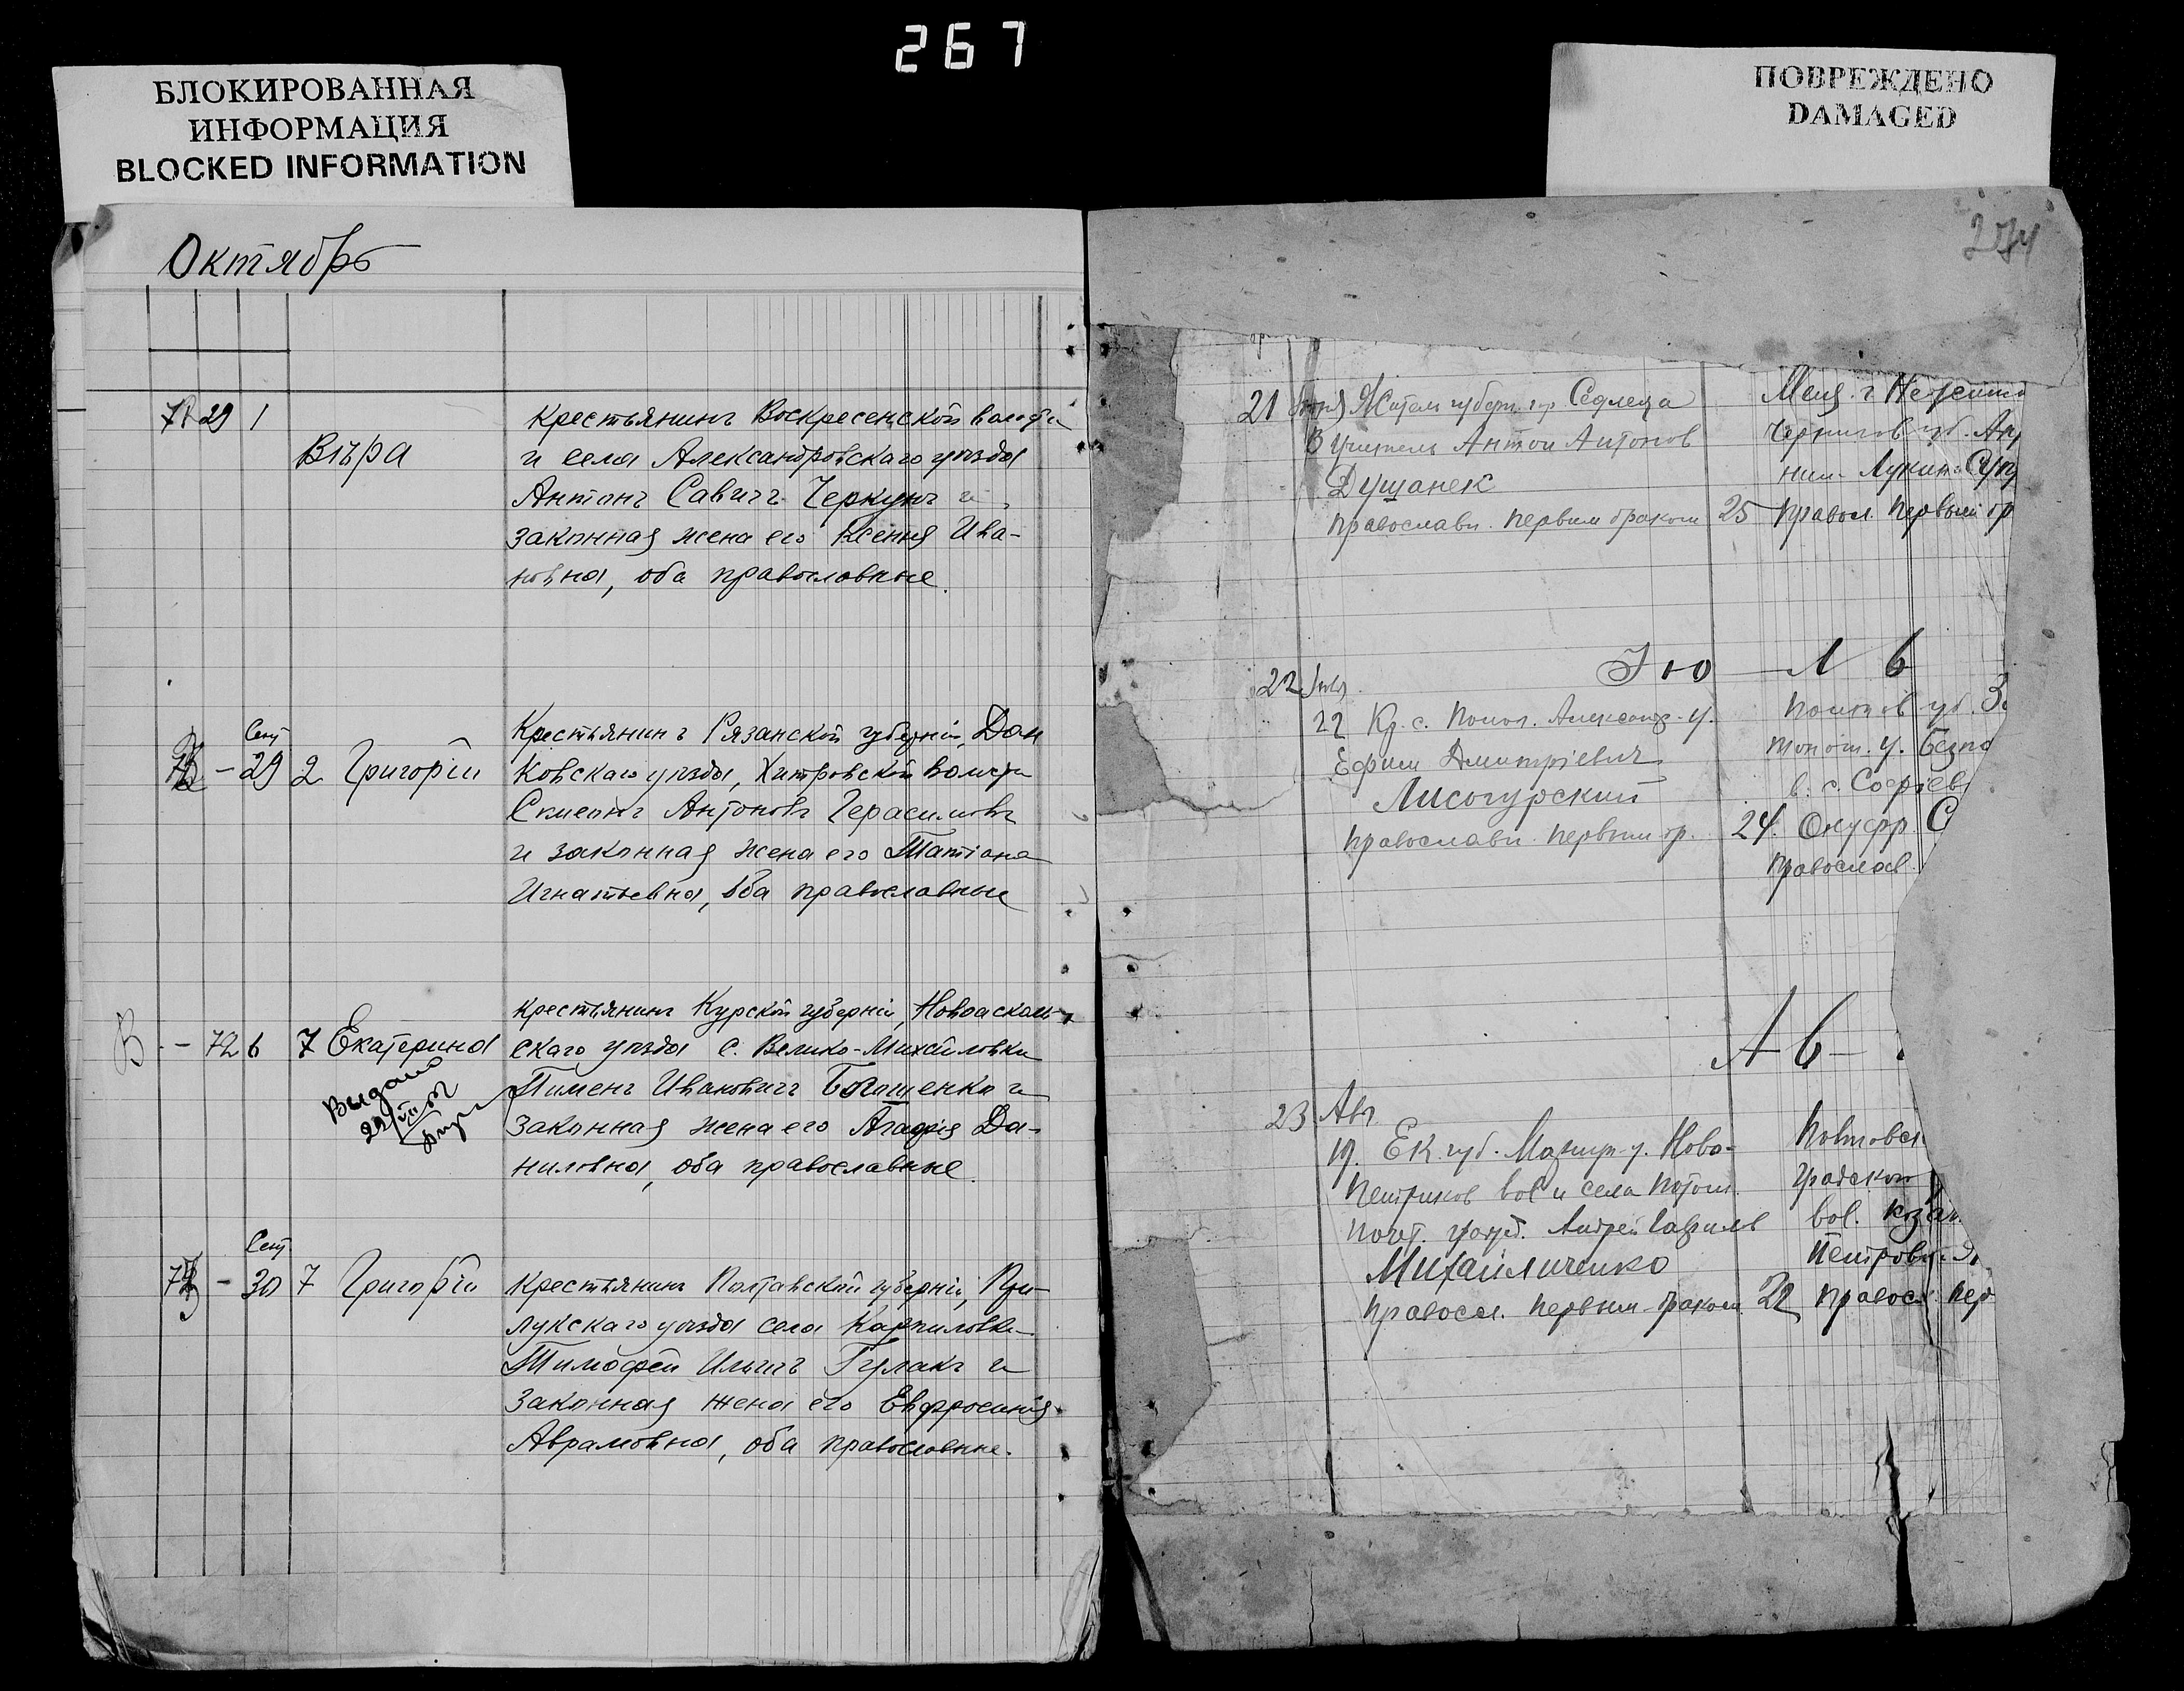 267
БЛОКИРОВАННАЯ
ИНФОРМАЦИЯ
BLOCKED INFORMATION
ПОВРЕЖДЕНО
DAMAGED
Октябрь
29 1
Вѣра
Крестьянинъ Воскресенской волости
и села Александровскаго уѣзда
Антонъ Савичъ Черкунъ и
законная жена его Ксенія Ива-
новна, оба православные
Сент
29 2 Григорій
Крестьянинъ Рязанской губерніи, Дан
ковскаго уѣзда, Хитровской волости
Симеонъ Антоновъ Герасимовъ
и законная жена его Татіана
Игнатьевна, оба православные
В - 72 6 7 Екатерина
Выдано
Крестьянинъ Курской губерніи, Новооскольс
скаго уѣзда с. Велико-Михайловки
Пименъ Ивановичъ Богащенко и
законная жена его Агафія Да-
ниловна, оба православные
Сент
30 7 Григорій
Крестьянинъ Полтавской губерніи, При
лукскаго уѣзда села Карпиловки
Тимофей Ильичъ Гулакъ и
законная жена его Евфросинія
Аврамовна, оба православные.
274
21 Житель губерн. гор. Седлеца
Учитель Антон Антонов
Душанек
православн. первым браком
Мещ. г. Нежина
Чернигов губ.
Лукина
25 правосл. первым бр
Ию — л ь
22 Июл
22 Кр. с. Полог. Александр. у.
Ефим Дмитріевич
Лисогурский
православн. первым бр.
Полтав губ. З
тонош. у.
в. с. Софіев
24. Онуфр. С
православ.
Ав
23 Авг.
19. Ек. губ. Мариуп. у. Ново-
петриков вол и села потом.
почт. гражд. Андрей Гаврилов
Михайличенко
правосл. первым браком
Полтавск
градской
вол. коза
Петров
22 правосл пер